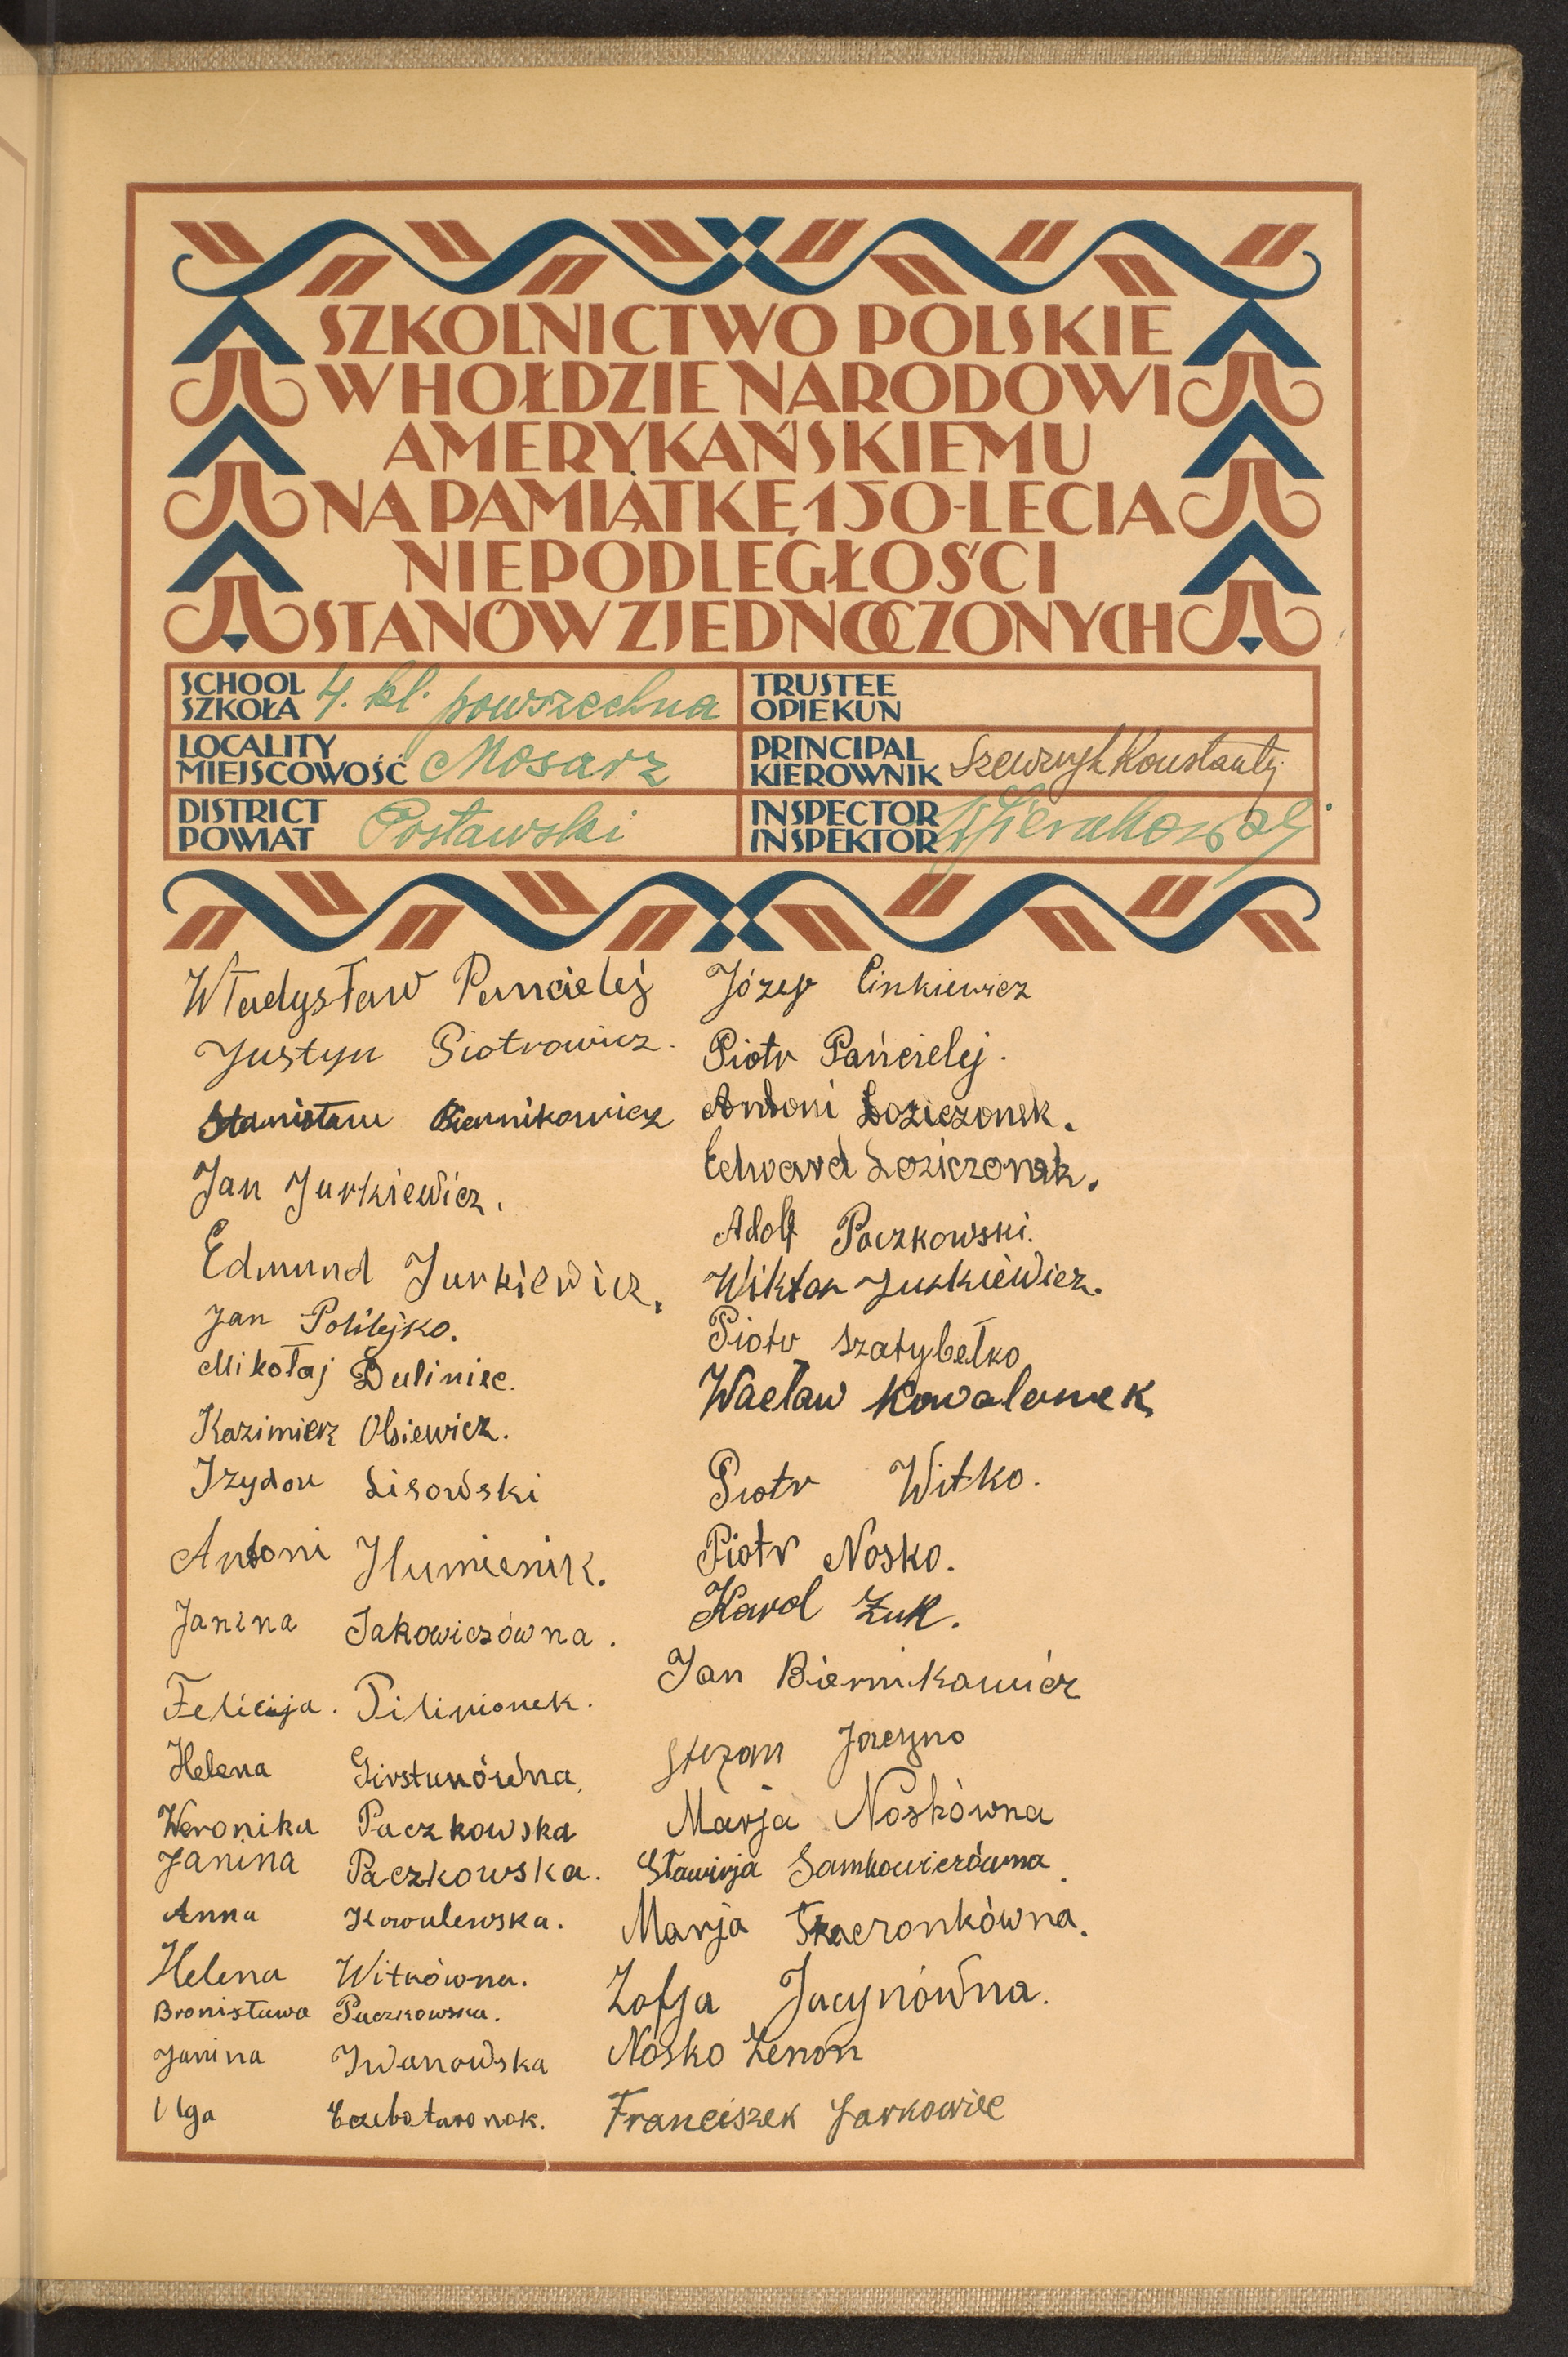 SZKOLNICTWO POLSKIE
W HOŁDZIE NARODOWI
AMERYKAŃSKIEMU
NA PAMIĄTKĘ 150-LECIA
NIEPODLEGŁOŚCI
STANÓW ZJEDNOCZONYCH
SCHOOL
SZKOŁA 4. kl. powszechna
LOCALITY
MIEJSCOWOŚĆ Mosarz
DISTRICT
POWIAT Postawski
TRUSTEE
OPIEKUN
PRINCIPAL
KIEROWNIK Szewczyk Konstanty
INSPECTOR
INSPEKTOR
Władysław Pancielej
Justyn Piotrowicz.
Stanisław Biernikowicz
Jan Jurkiewicz.
Edmund Jurkiewicz.
Jan Politejko.
Mikołaj Duliniec.
Kazimierz Olsiewicz.
Izydor Lisowski
Antoni Humienik.
Janina Jakowiczówna.
Felicija. Pilipionek.
Helena Girstunówna.
Weronika Paczkowska
Janina Paczkowska.
Anna Kowalewska.
Helena Witkówna.
Bronisława Paczkowska.
Janina Iwanowska
Olga Czebotaronok.
Józef Cinkiewicz
Piotr Pańcielej.
Antoni Łoziczonek.
Edward Łoziczonek.
Adolf Paczkowski.
Wiktor Jurkiewicz.
Piotr Szatybełko
Wacław Kowalonek
Piotr Witko.
Piotr Nosko.
Karol Żuk.
Jan Biernikowicz
Stefan Jacyno
Marja Noskówna
Sławinja Samkowiczówna.
Marja Tkaczonkówna.
Zofja Jacynówna.
Nosko Zenon
Franciszek Jarkowiec